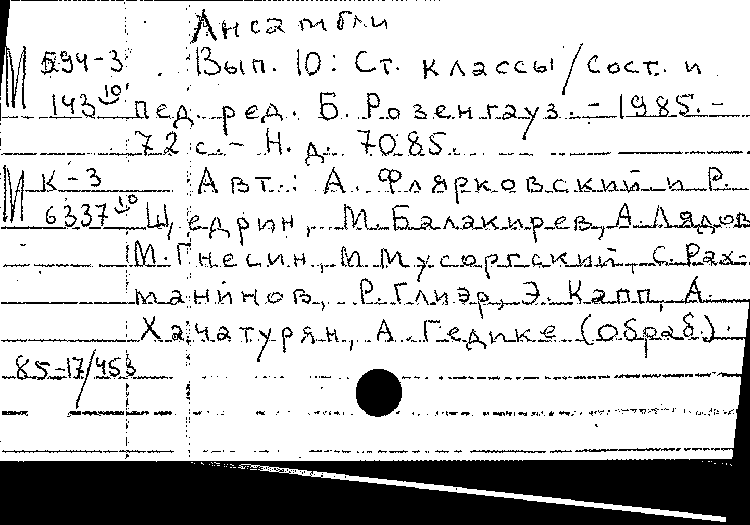 Ансамбли
М Б94-3 Вып. 10: Ст. классы/сост. и
143 10 пед. ред. Б. Розенгауз. - 1985. -
72 с. - Н. д. 7085.
М К-3 Авт.: А. Флярковский и Р.
6337 10 Щедрин, М. Балакирев, А. Лядов
М. Гнесин, М Мусоргский, С. Рах-
манинов, Р. Глиэр, Э. Капп, А.
Хачатурян, А. Гедике (обраб.).
85-17/453